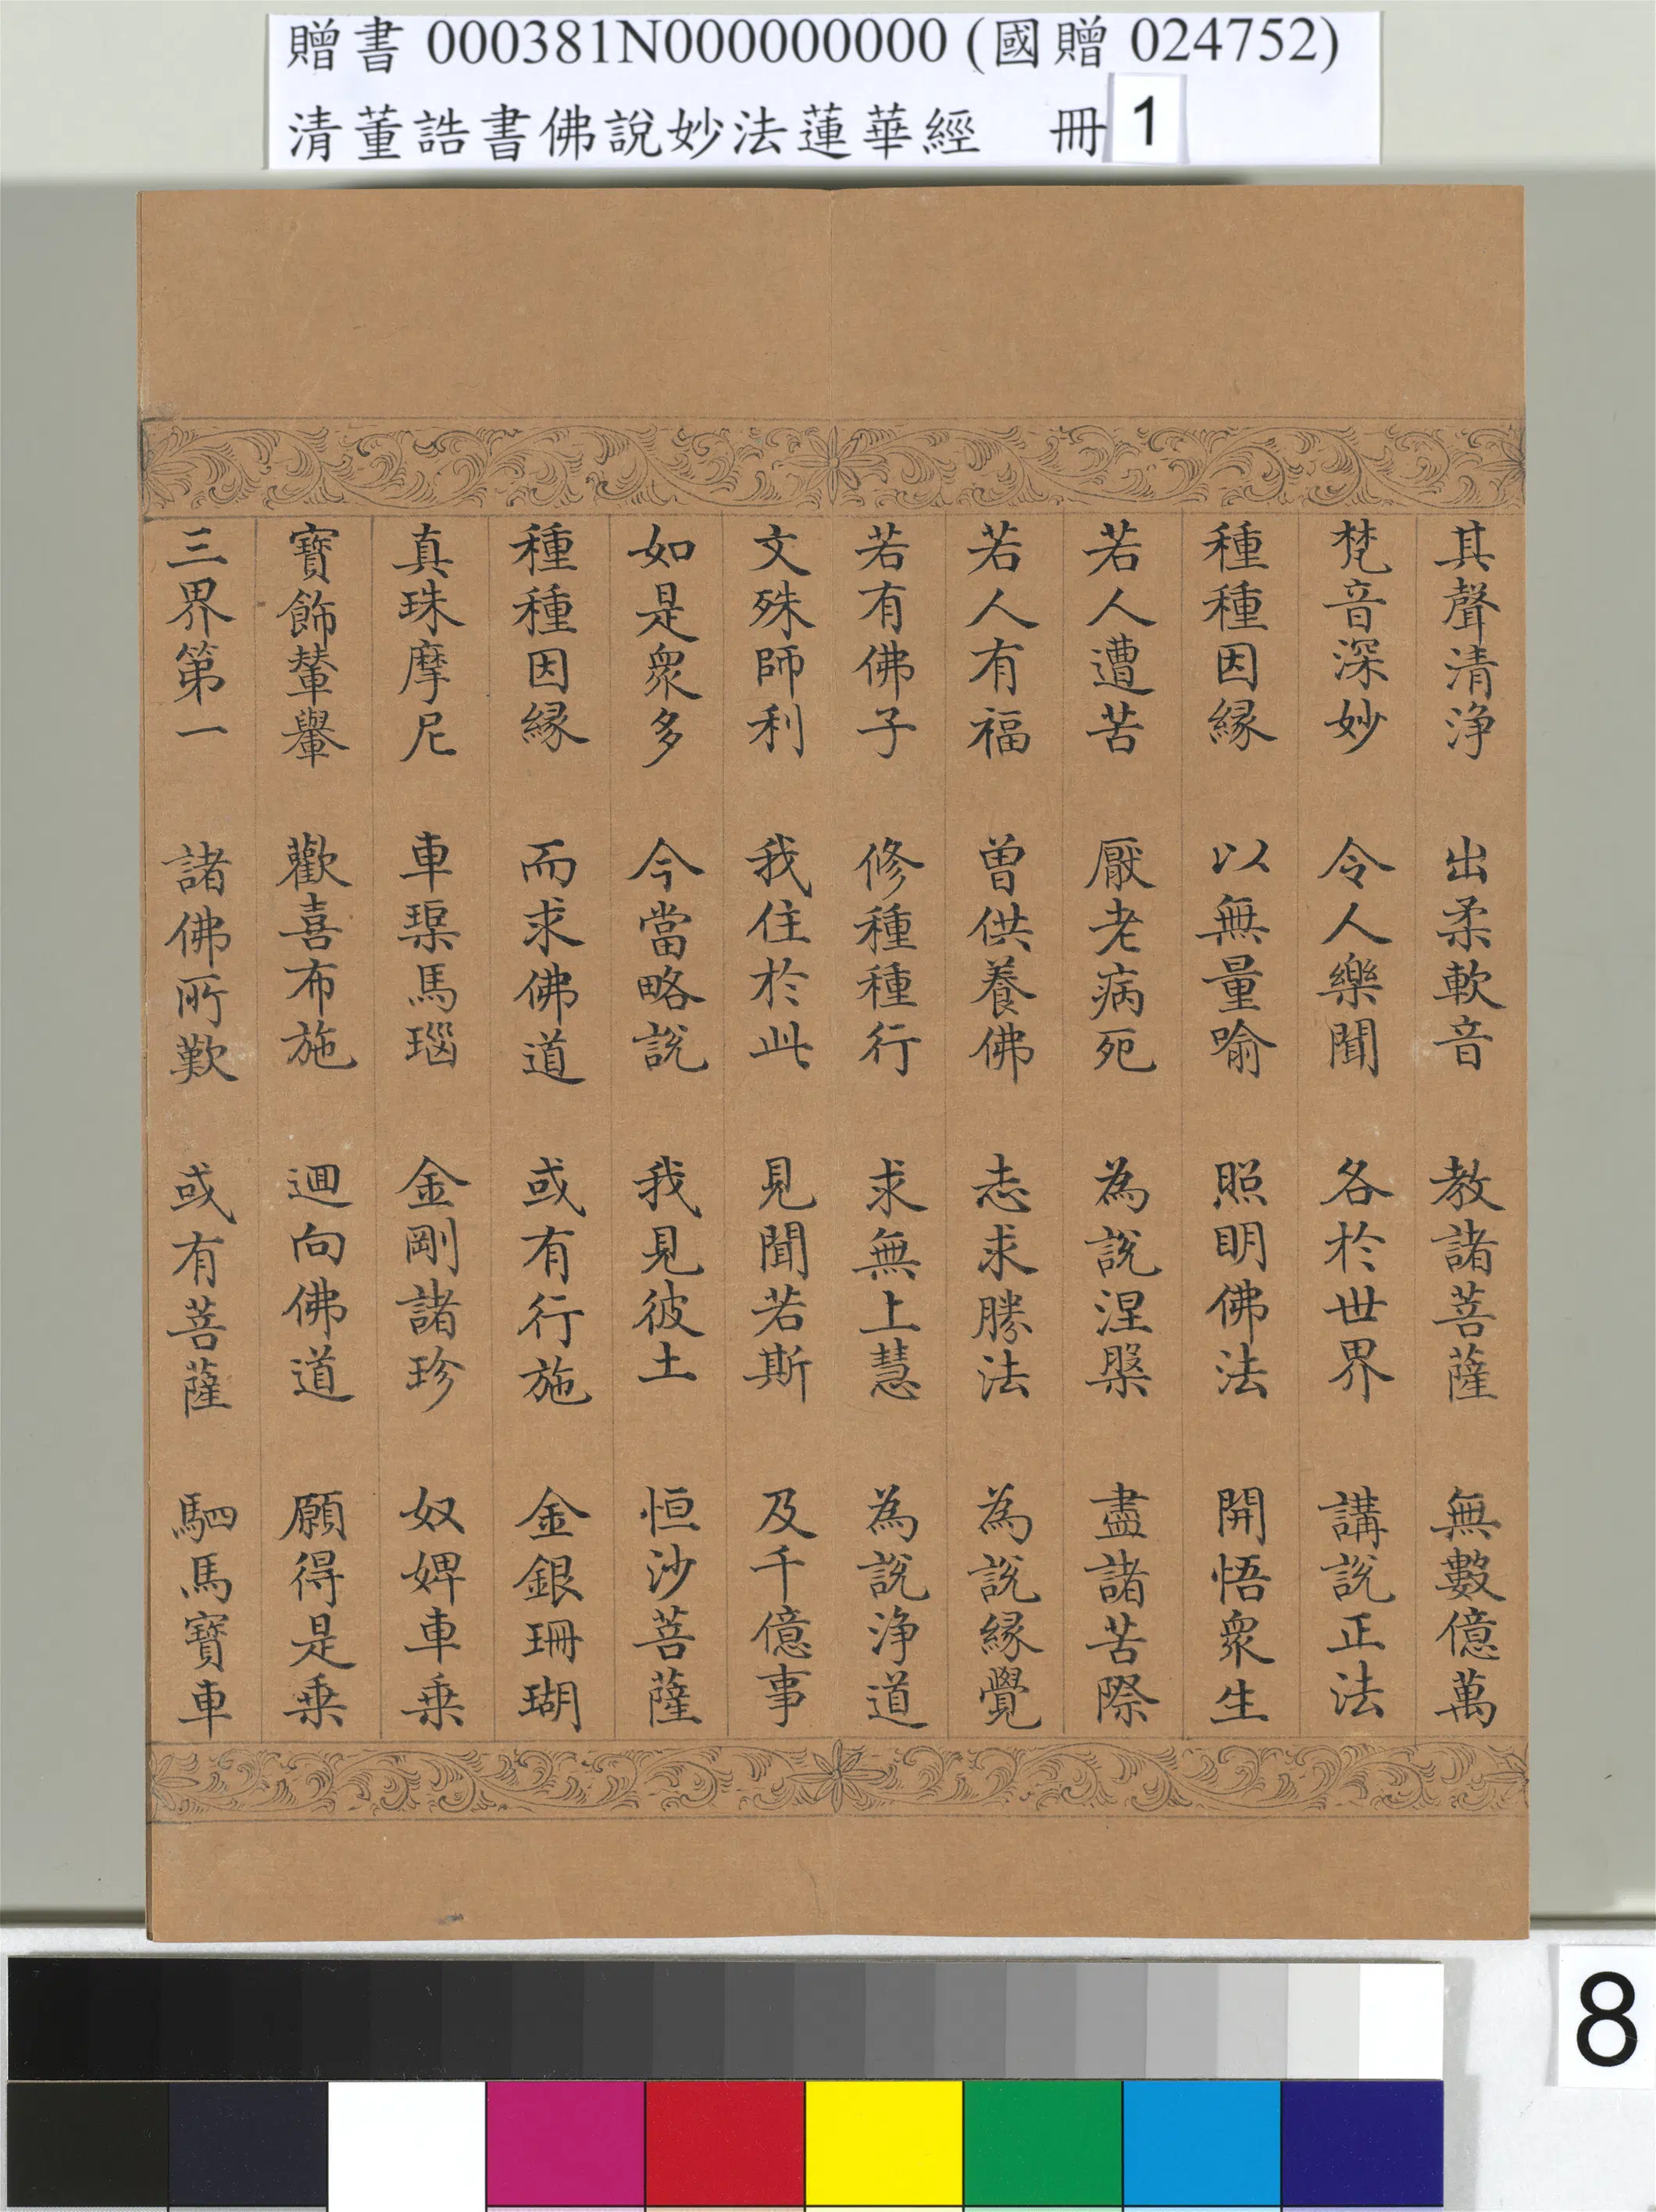 贈書 000381N000000000 (國贈 024752)
清董誥書佛說妙法蓮華經 冊 1
其聲清淨 出柔軟音 教諸菩薩 無數億萬
梵音深妙 令人樂聞 各於世界 講說正法
種種因緣 以無量喻 照明佛法 開悟眾生
若人遭苦 厭老病死 為說涅槃 盡諸苦際
若人有福 曾供養佛 志求勝法 為說緣覺
若有佛子 修種種行 求無上慧 為說淨道
文殊師利 我住於此 見聞若斯 及千億事
如是眾多 今當略說 我見彼土 恒沙菩薩
種種因緣 而求佛道 或有行施 金銀珊瑚
真珠摩尼 車磲馬瑙 金剛諸珍 奴婢車乘
寶飾輦轝 歡喜布施 迴向佛道 願得是乘
三界第一 諸佛所歎 或有菩薩 駟馬寶車
8